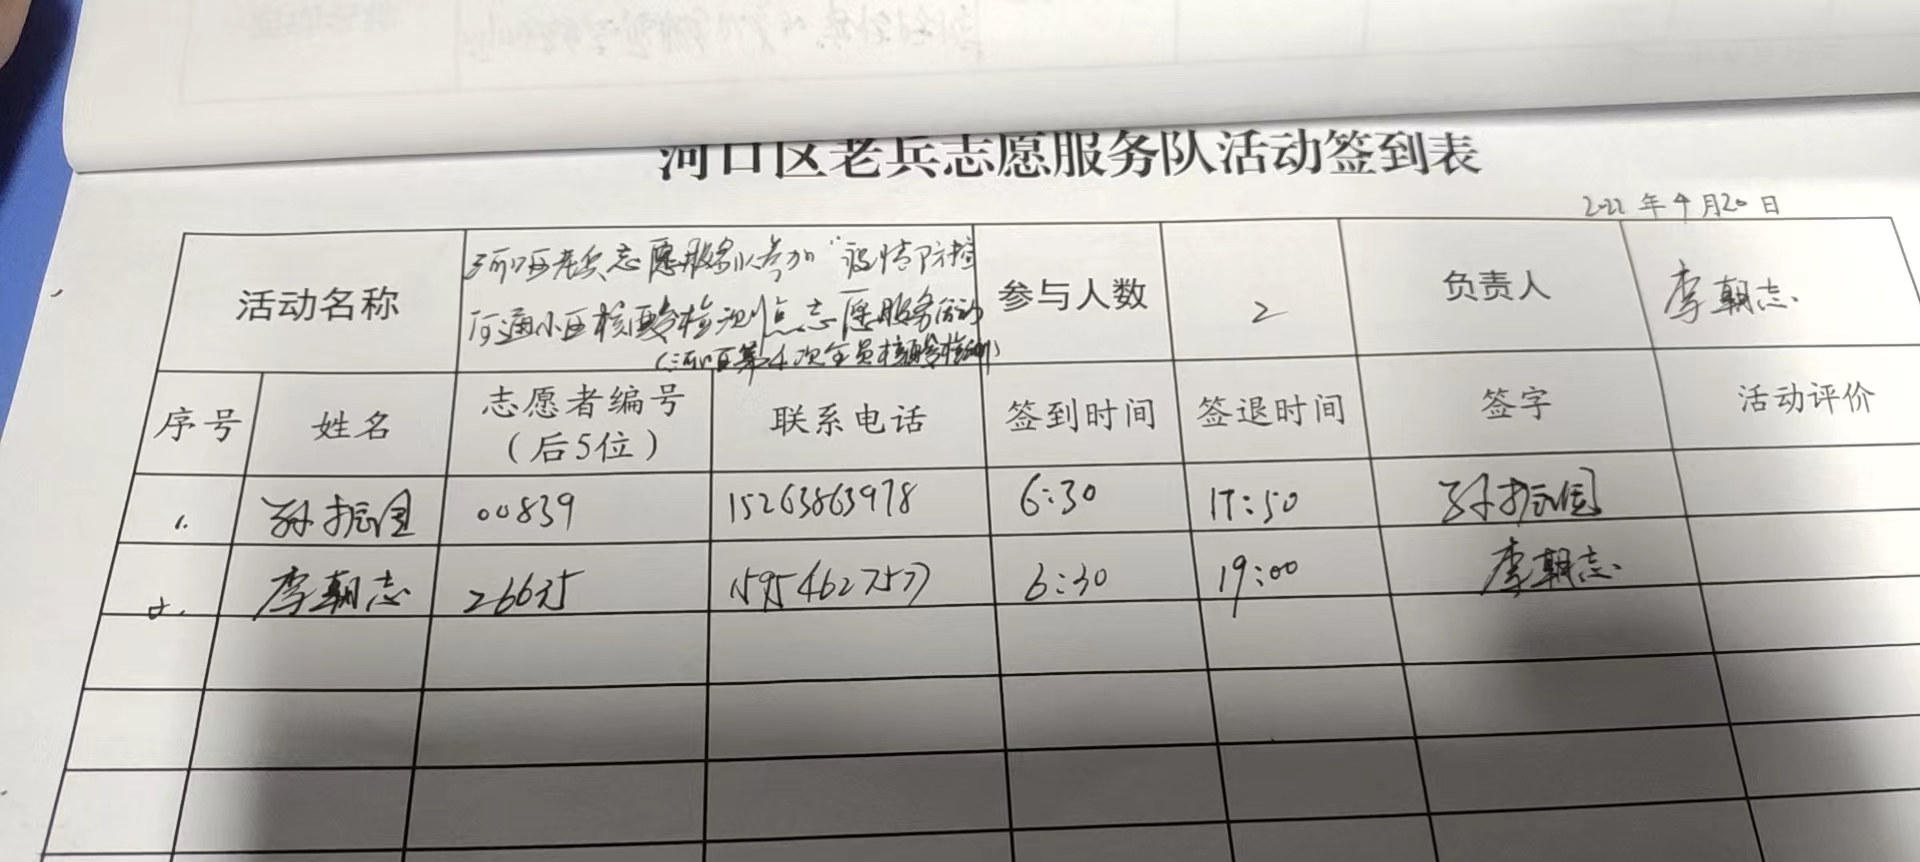 河口区老兵志愿服务队活动签到表
2022年4月20日
活动名称
河口区老兵志愿服务队参加“疫情防控
河通小区核酸检测点志愿服务活动
（河口区第4次全员核酸检测）
参与人数 2 负责人 李朝志
序号 姓名 志愿者编号 联系电话 签到时间 签退时间 签字 活动评价
（后5位）
1. 孙振国 00839 15263863978 6:30 17:50 孙振国
2. 李朝志 26635 15954627577 6:30 19:00 李朝志